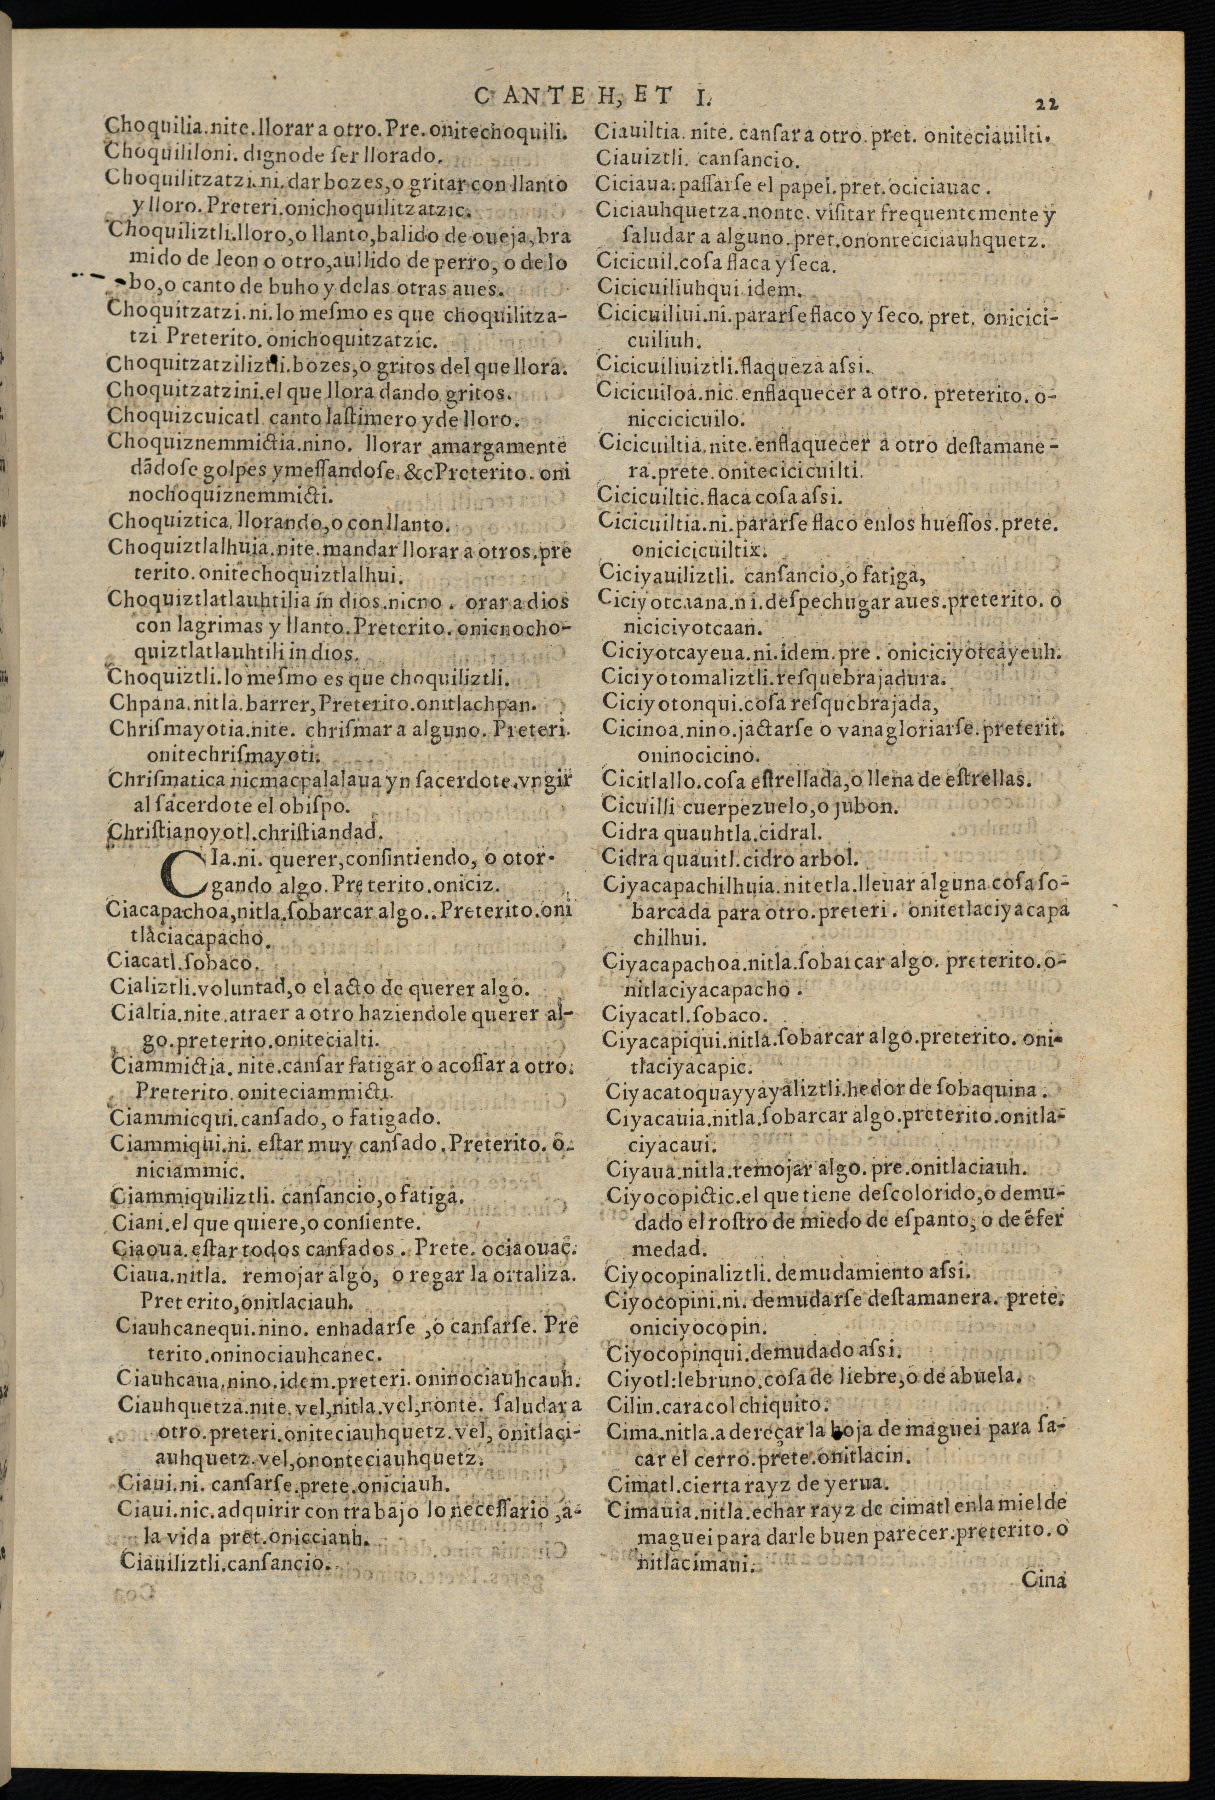 C ANTE H, ET I.
22
Choquilia.nite.llorar a otro.Pre.onitechoquili.
Choquililoni.dignode ſer llorado.
Choquilitzatzi.ni.dar bozes,o gritar con llanto
y lloro.Preteri.onichoquilitzatzic.
Choquiliztli.lloro,o llanto,balido de oueja,bra
mido de leon o otro,aullido de perro, o de lo
bo,o canto de buho y delas otras aues.
Choquitzatzi.ni.lo meſmo es que choquilitza-
tzi Preterito.onichoquitzatzic.
Choquitzatziliztli.bozes,o gritos del que llora.
Choquitzatzini.el que llora dando gritos.
Choquizcuicatl canto laſtimero y de lloro.
Choquiznemmictia.nino. llorar amargamente
dãdoſe golpes ymeſſandoſe.&cPreterito.oni
nochoquiznemmicti.
Choquiztica.llorando,o con llanto.
Choquiztlalhuia.nite.mandar llorar a otros.pre
terito.onitechoquiztlalhui.
Choquiztlatlauhtilia in dios.nicno . orar a dios
con lagrimas y llanto.Preterito.onicnocho-
quiztlatlauhtili in dios.
Choquiztli.lo meſmo es que choquiliztli.
Chpana.nitla.barrer,Preterito.onitlachpan.
Chriſmayotia.nite. chriſmar a alguno. Preteri.
onitechriſmayoti.
Chriſmatica nicmacpalalaua yn ſacerdote.vngir
al ſacerdote el obiſpo.
Chriſtianoyotl.chriſtiandad.
CIa.ni. querer,conſintiendo, o otor-
gando algo. Preterito.oniciz.
Ciacapachoa,nitla.ſobarcar algo..Preterito.oni
tlaciacapacho.
Ciacatl.ſobaco.
Cializtli.voluntad,o el acto de querer algo.
Cialtia.nite.atraer a otro haziendole querer al-
go.preterito.onitecialti.
Ciammictia. nite.canſar fatigar o acoſſar a otro.
Preterito.oniteciammicti.
Ciammicqui.canſado, o fatigado.
Ciammiqui.ni. eſtar muy canſado.Preterito. o-
niciammic.
Ciammiquiliztli. canſancio,o fatiga.
Ciani.el que quiere,o conſiente.
Ciaoua.eſtar todos canſados . Prete. ociaouac.
Ciaua.nitla. remojar algo, o regar la ortaliza.
Preterito,onitlaciauh.
Ciauhcanequi.nino. enhadarſe ,o canſarſe. Pre
terito.oninociauhcanec.
Ciauhcaua.nino.idem.preteri.oninociauhcauh.
Ciauhquetza.nite.vel,nitla.vel,nonte. ſaludar a
otro.preteri.oniteciauhquetz.vel, onitlaci-
auhquetz.vel,ononteciauhquetz.
Ciaui.ni. canſarſe.prete.oniciauh.
Ciaui.nic.adquirir con trabajo lo neceſſario ,a-
la vida pret.onicciauh.
Ciauiliztli.canſancio.
Ciauiltia. nite. canſar a otro.pret. oniteciauilti.
Ciauiztli. canſancio.
Ciciaua.paſſarſe el papel.pret.ociciauac .
Ciciauhquetza.nonte. viſitar frequentemente y
ſaludar a alguno.pret.ononteciciauhquetz.
Cicicuil.coſa flaca y ſeca.
Cicicuiliuhqui idem.
Cicicuiliui.ni.pararſe flaco y ſeco. pret. onicici-
cuiliuh.
Cicicuiliuiztli.flaqueza aſſi.
Cicicuiloa.nic.enflaquecer a otro. preterito. o-
niccicicuilo.
Cicicuiltia.nite.enflaquecer a otro deſtamane-
ra.prete.onitecicicuilti.
Cicicuiltic.flaca coſa aſſi.
Cicicuiltia.ni.pararſe flaco enlos hueſſos.prete.
onicicicuiltix.
Ciciyauiliztli. canſancio,o fatiga,
Ciciyotcaana.ni.deſpechugar aues.preterito. o
niciciyotcaan.
Ciciyotcayeua.ni.idem.pre . oniciciyotcayeuh.
Ciciyotomaliztli.reſquebrajadura.
Ciciyotonqui.coſa reſquebrajada,
Cicinoa.nino.jactarſe o vanagloriarſe.preterit.
oninocicino.
Cicitlallo.coſa eſtrellada,o llena de eſtrellas.
Cicuilli cuerpezuelo,o jubon.
Cidra quauhtla.cidral.
Cidra quauitl.cidro arbol.
Ciyacapachilhuia.nitetla.lleuar alguna coſa ſo-
barcada para otro.preteri . onitetlaciyacapa
chilhui.
Ciyacapachoa.nitla.ſobarcar algo. preterito.o-
nitlaciyacapacho .
Ciyacatl.ſobaco.
Ciyacapiqui.nitla.ſobarcar algo.preterito. oni-
tlaciyacapic.
Ciyacatoquayyayaliztli.hedor de ſobaquina .
Ciyacauia.nitla.ſobarcar algo.preterito.onitla-
ciyacaui.
Ciyaua.nitla.remojar algo. pre.onitlaciauh.
Ciyocopictic.el que tiene deſcolorido,o demu-
dado el roſtro de miedo de eſpanto, o de ẽfer
medad.
Ciyocopinaliztli.demudamiento aſſi.
Ciyocopini.ni. demudarſe deſtamanera. prete.
oniciyocopin.
Ciyocopinqui.demudado aſſi.
Ciyotl:lebruno.coſa de liebre,o de abuela.
Cilin.caracol chiquito.
Cima.nitla.adereçar la hoja de maguei para ſa-
car el cerro.prete.onitlacin.
Cimatl.cierta rayz de yerua.
Cimauia.nitla.echar rayz de cimatl enla miel de
maguei para darle buen parecer.preterito.o
nitlacimaui.
Cina